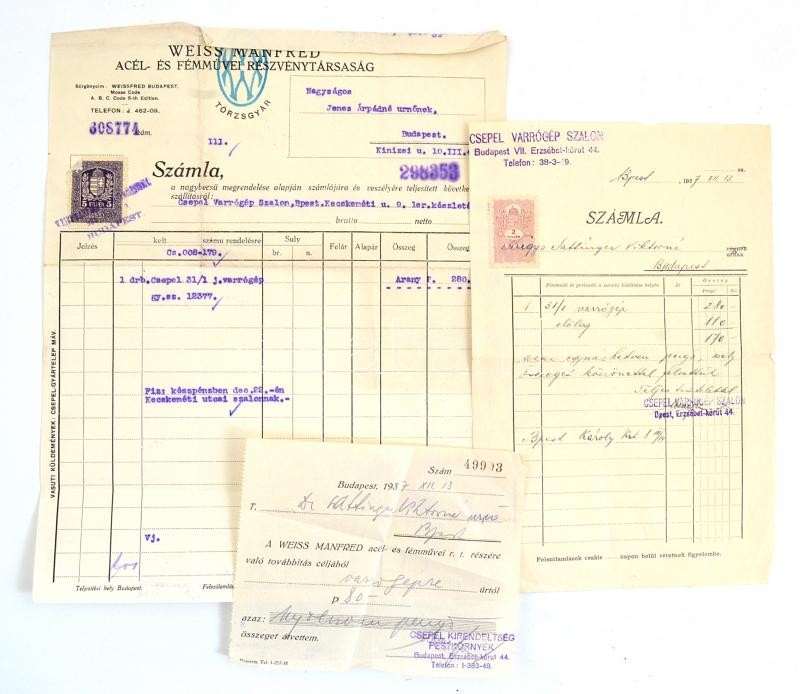 WEISS MANFRED
ACÉL- ÉS FÉMMŰVEI RÉSZVÉNYTÁRSASÁG
Sürgönycim: WEISSFRED BUDAPEST.
Mosse Code
A. B. C. Code 5-th Edition.
TELEFON: J. 462-09.
TÖRZSGYÁR
608774 szám.
III./
Nagyságos
Jenes Árpádné urnőnek,
Budapest.
Kinizsi u. 10.III.
298353
Számla,
a nagybecsű megrendelése alapján számlájára és veszélyére teljesített követke
szállításról:
Csepel Varrógép Szalon, Bpest, Kecskeméti u. 9.
brutto netto
5
BUDAPEST
Jelzés kelt számu rendelésre Suly Felár Alapár Összeg Összeg
br. n.
Cs.008-179.
1 drb. Csepel 31/1 j.varrógép Arany P. 280.
gy.sz. 12377.
Fiz: készpénzben dec.22.-én
Kecskeméti utcai szalonnak.-
Vj.
VASUTI KÜLDEMÉNYEK: CSEPEL-GYÁRTELEP MÁV.
Teljesitési hely Budapest.
CSEPEL VARRÓGÉP SZALON
Budapest VII. Erzsébet-körut 44.
Telefon: 38-3-9.
Bpest, 1937 XII. 13
SZÁMLA.
2
Sattinger Viktorné
Budapest
Fizetendő és perlendő a számla kiállitása helyén Ár Összeg
Pengő fill.
1 31/1 varrógép 280 -
előleg 110 -
170 -
azaz egyszázhetven pengő, mely
összeget köszönettel felvettük
Teljes tisztelettel
CSEPEL VARRÓGÉP SZALON
Bpest, Erzsébet-körút 44.
Bpest Károly
Felszólamlások csakis napon belül vétetnek figyelembe.
Szám 49993
Budapest, 1937 XII. 13
T. Dr Sattinger Viktorné urnő
Bpest
A WEISS MANFRED acél- és fémművei r. t. részére
való továbbitás céljából
varrógépre úrtól
P 80-
azaz: Nyolcvan pengő
összeget átvettem.
CSEPEL KIRENDELTSÉG
PESTKÖRNYÉK
Budapest, Erzsébet-körut 44.
Telefon: 1-383-49.